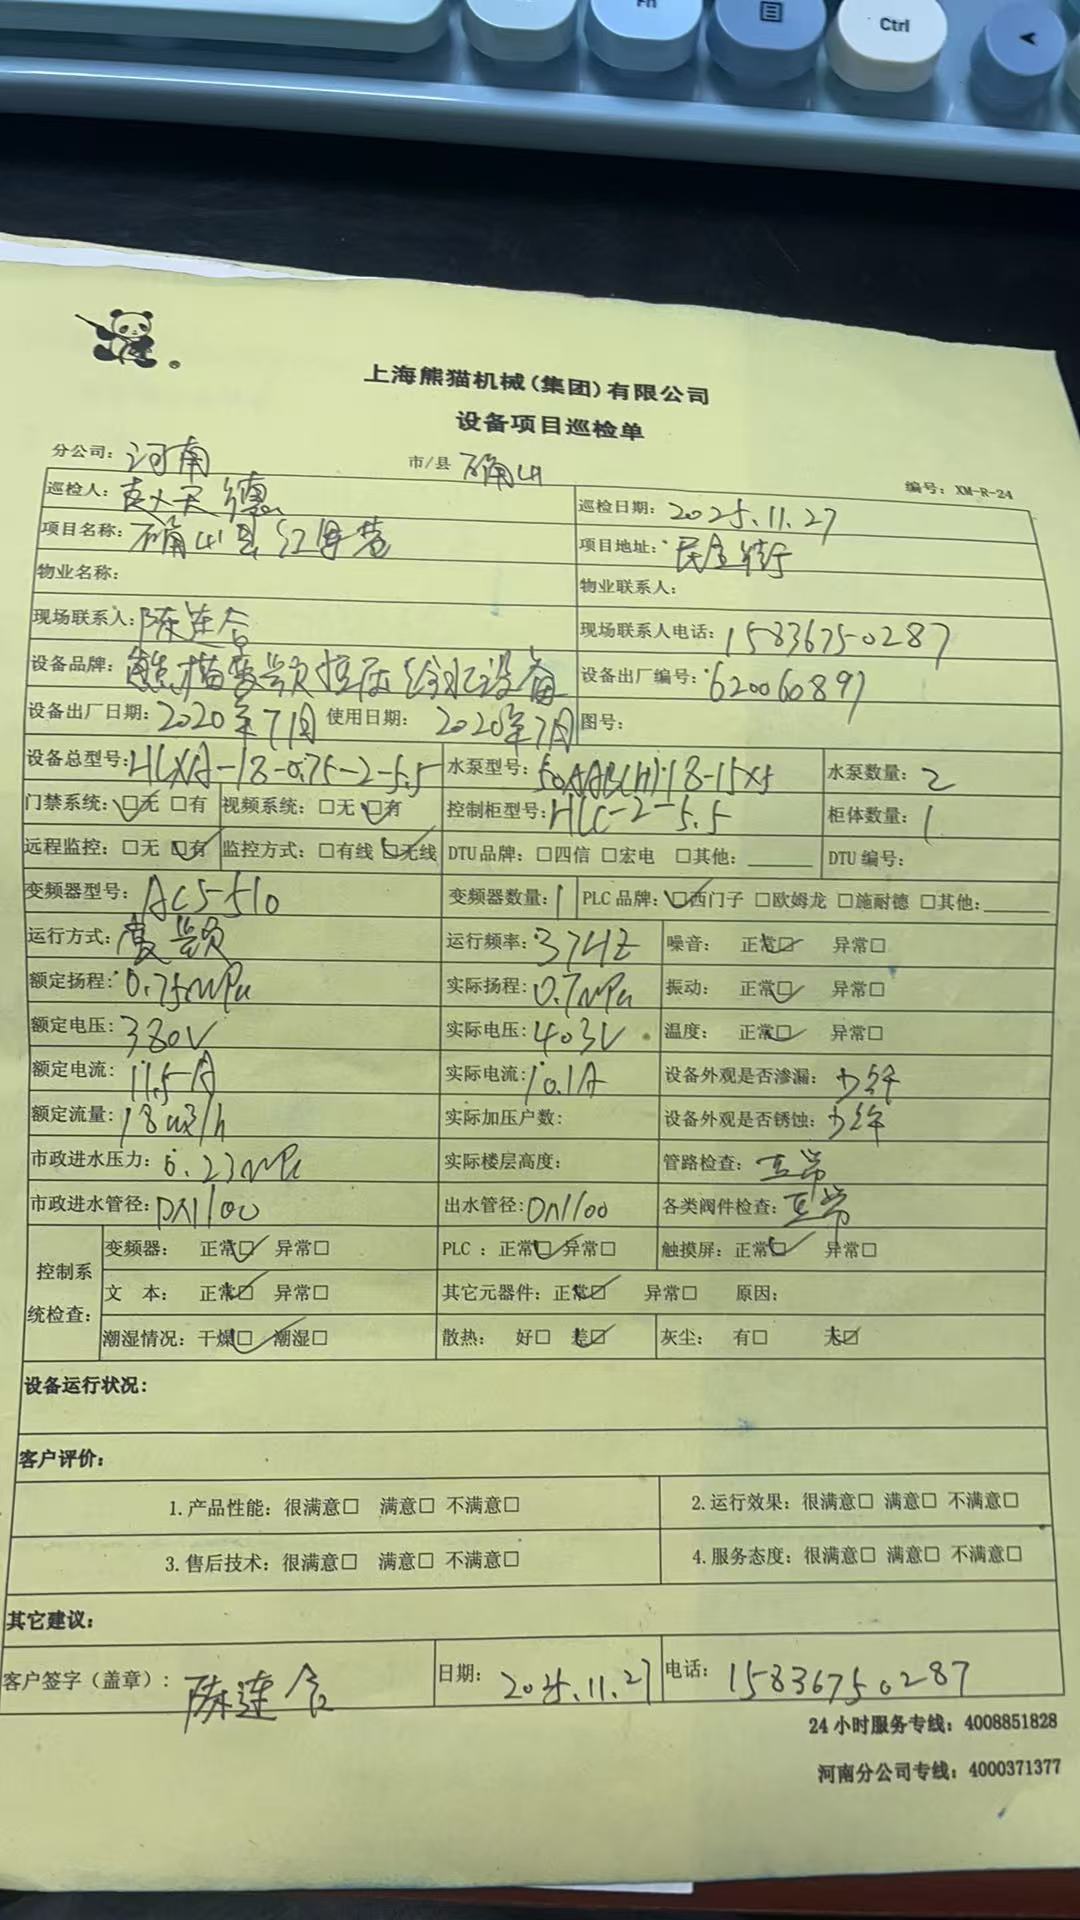 Fn
Ctrl
上海熊猫机械(集团)有限公司
设备项目巡检单
分公司：河南 市/县 确山 编号：XM-R-24
巡检人：赵天德 巡检日期：2025.11.27
项目名称：确山县红 项目地址：民主街
物业名称： 物业联系人：
现场联系人：陈连合 现场联系人电话：15836750287
设备品牌：熊猫变频恒压给水设备 设备出厂编号：620060891
设备出厂日期：2020年7月 使用日期：2020年7月 图号：
设备总型号：HLXA-18-0.75-2-5.5 水泵型号：50AAB(H)18-15X5 水泵数量：2
门禁系统：☑无 □有 视频系统：□无 ☑有 控制柜型号：HLC-2-5.5 柜体数量：1
远程监控：□无 ☑有 监控方式：□有线 ☑无线 DTU品牌：□四信 □宏电 □其他：______ DTU编号：
变频器型号：AC5-510 变频器数量：1 PLC品牌：☑西门子 □欧姆龙 □施耐德 □其他：______
运行方式：变频 运行频率：37HZ 噪音： 正常☑ 异常□
额定扬程：0.75MPa 实际扬程：0.7MPa 振动： 正常☑ 异常□
额定电压：380V 实际电压：403V 温度： 正常☑ 异常□
额定电流：11.5A 实际电流：10.1A 设备外观是否渗漏：少许
额定流量：18m3/h 实际加压户数： 设备外观是否锈蚀：少许
市政进水压力：0.23MPa 实际楼层高度： 管路检查：正常
市政进水管径：DN100 出水管径：DN100 各类阀件检查：正常
控制系统检查： 变频器： 正常☑ 异常□ PLC：正常☑ 异常□ 触摸屏：正常☑ 异常□
文 本： 正常☑ 异常□ 其它元器件：正常☑ 异常□ 原因：
潮湿情况：干燥☑ 潮湿□ 散热： 好□ 差☑ 灰尘： 有□ 无☑
设备运行状况：
客户评价：
1.产品性能：很满意□ 满意□ 不满意□ 2.运行效果：很满意□ 满意□ 不满意□
3.售后技术：很满意□ 满意□ 不满意□ 4.服务态度：很满意□ 满意□ 不满意□
其它建议：
客户签字（盖章）：陈连合 日期：2025.11.27 电话：15836750287
24小时服务专线：4008851828
河南分公司专线：4000371377